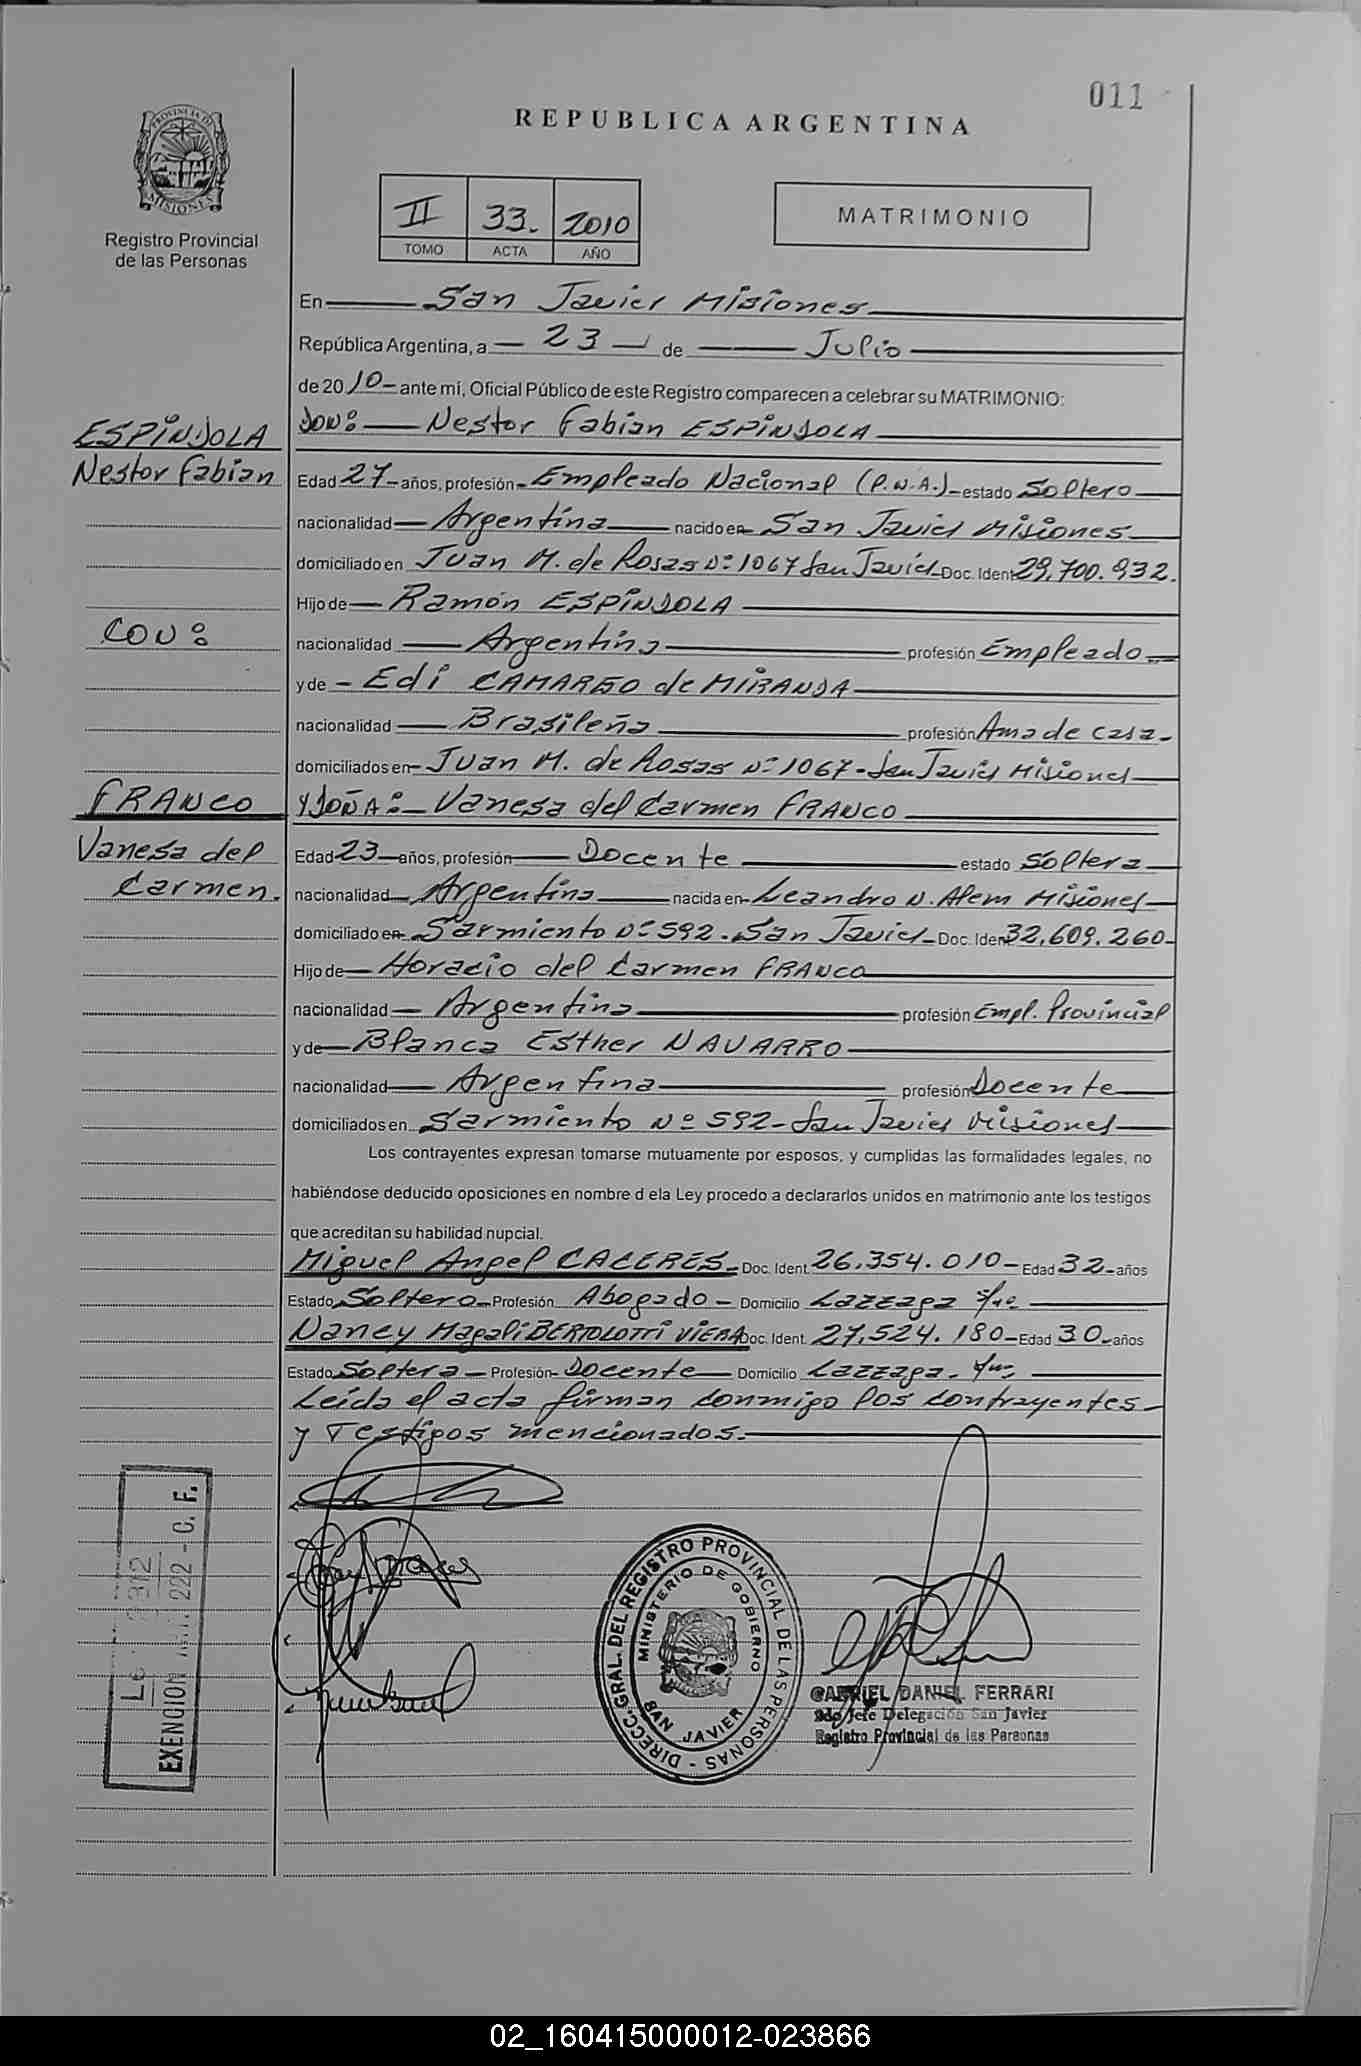 011
REPUBLICA ARGENTINA
PROVINCIA DE MISIONES
Registro Provincial
de las Personas
II 33. 2010
TOMO ACTA AÑO
MATRIMONIO
En San Javier Misiones
República Argentina, a 23 de Julio
de 2010 ante mí, Oficial Público de este Registro comparecen a celebrar su MATRIMONIO:
ESPINDOLA
Nestor Fabian
CON:
FRANCO
Vanesa del
Carmen.
DON: Nestor Fabian ESPINDOLA
Edad 27 años, profesión Empleado Nacional (P.N.A.) estado Soltero
nacionalidad Argentina nacido en San Javier Misiones
domiciliado en Juan M. de Rosas Nº 1067 San Javier Doc. Ident 29.700.932.
Hijo de Ramón ESPINDOLA
nacionalidad Argentina profesión Empleado
y de Edi CAMARGO de MIRANDA
nacionalidad Brasileña profesión Ama de casa
domiciliados en Juan M. de Rosas Nº 1067 - San Javier Misiones
Y DOÑA: Vanesa del Carmen FRANCO
Edad 23 años, profesión Docente estado Soltera
nacionalidad Argentina nacida en Leandro N. Alem Misiones
domiciliado en Sarmiento Nº 592. San Javier Doc. Iden 32.609.260
Hijo de Horacio del Carmen FRANCO
nacionalidad Argentina profesión Empl. Provincial
y de Blanca Esther NAVARRO
nacionalidad Argentina profesión Docente
domiciliados en Sarmiento Nº 592 - San Javier Misiones
Los contrayentes expresan tomarse mutuamente por esposos, y cumplidas las formalidades legales, no
habiéndose deducido oposiciones en nombre d ela Ley procedo a declararlos unidos en matrimonio ante los testigos
que acreditan su habilidad nupcial.
Miguel Angel CACERES Doc. Ident. 26.354.010 Edad 32 años
Estado Soltero Profesión Abogado Domicilio Lazzaga
Nancy Magali BERTOLOTTI VIERA Doc. Ident. 27.524.180 Edad 30 años
Estado Soltera Profesión Docente Domicilio Lazzaga.
Leída el acta firman conmigo los contrayentes
y Testigos mencionados.
EXENCION 222 - C. F.
DIRECC. GRAL. DEL REGISTRO PROVINCIAL DE LAS PERSONAS
MINISTERIO DE GOBIERNO
SAN JAVIER
GABRIEL DANIEL FERRARI
2do Jefe Delegación San Javier
Registro Provincial de las Personas
02_160415000012-023866